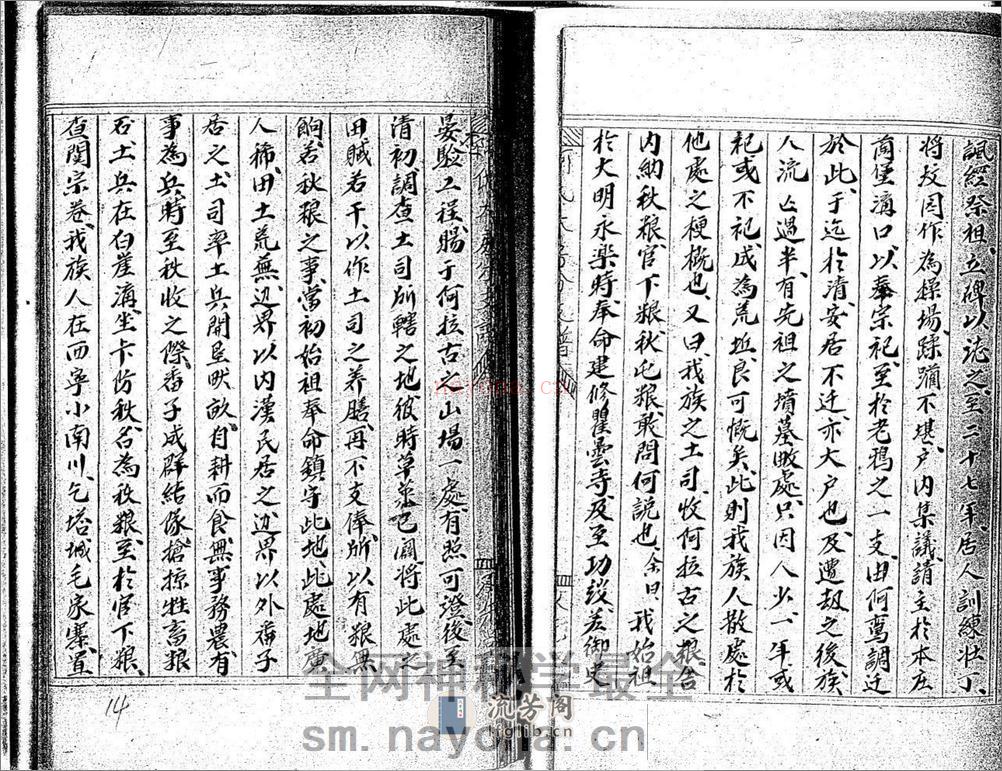 諷經祭祖立碑以誌之至二十七年居人訓練壮丁
将坟园作為操場蹂躪不堪户内集議請主於本庄
堡溝口以奉宗祀至於老鴉之一支由何鸾調迁
於此于迄於清安居不迁亦大户也及遭劫之後族
人流亡過半有先祖之墳墓畝處只因人少一年或
祀或不祀成為荒坵良可慨矣此則我族人散處於
他處之梗概也又曰我族之土司收何拉古之粮含
内納秋粮官下粮秋屯粮敢問何説也余曰我始祖
於大明永楽時奉命建修瞿曇寺及至功竣差御史
晏驗工程賜于何拉古之山場一處有照可證後至
清初調查土司所轄之地彼時草莱已闢将此處之
田賦若干以作土司之养膳再不支俸所以有粮無
餉若秋粮之事當初始祖奉命鎮守此地此處地廣
人稀田土荒蕪边界以内漢民居之边界以外番子
居之土司率土兵開垦畎畝自耕而食無事務農有
事為兵時至秋收之際番子成群結隊搶掠牲畜粮
石土兵在白崖溝坐卡防秋名為秋粮至於官下粮
查閲宗卷我族人在西寧小南川乞塔城毛家寨置
14
全网神秘学最全
流芳阁
lfglib.cn
sm.nayona.cn
nayona.cn